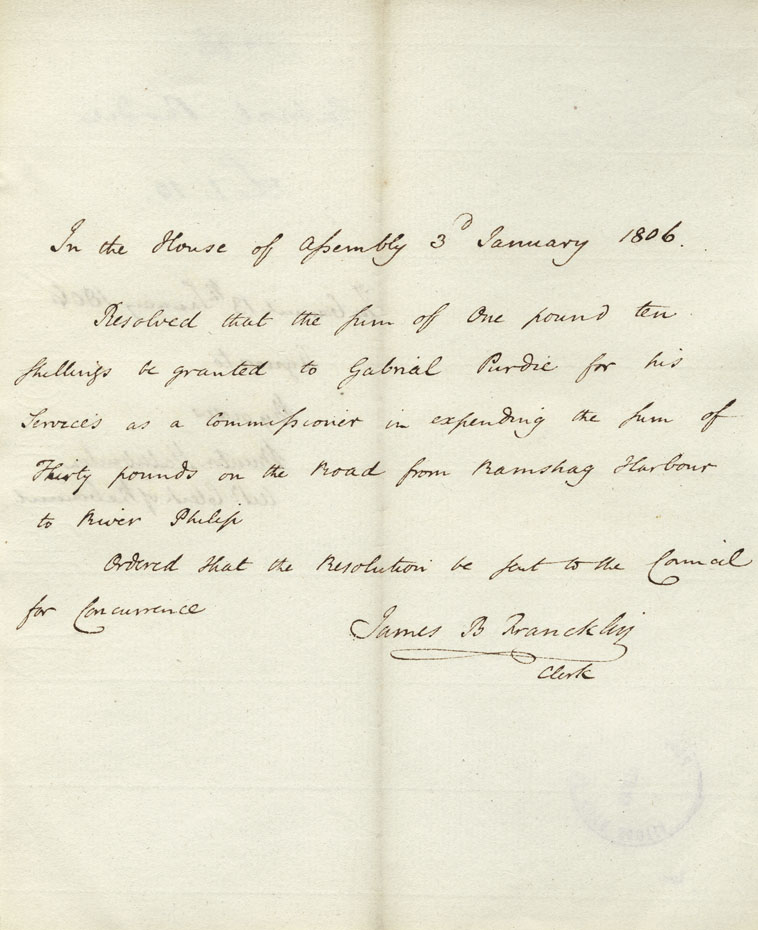 In the House of Assembly 3d January 1806.
Resolved that the sum of One pound ten
shillings be granted to Gabrial Purdie for his
Services as a Commissioner in expending the sum of
Thirty pounds on the Road from Ramshag Harbour
to River Philip
Ordered that the Resolution be sent to the Council
for Concurrence
James B Francklin
Clerk